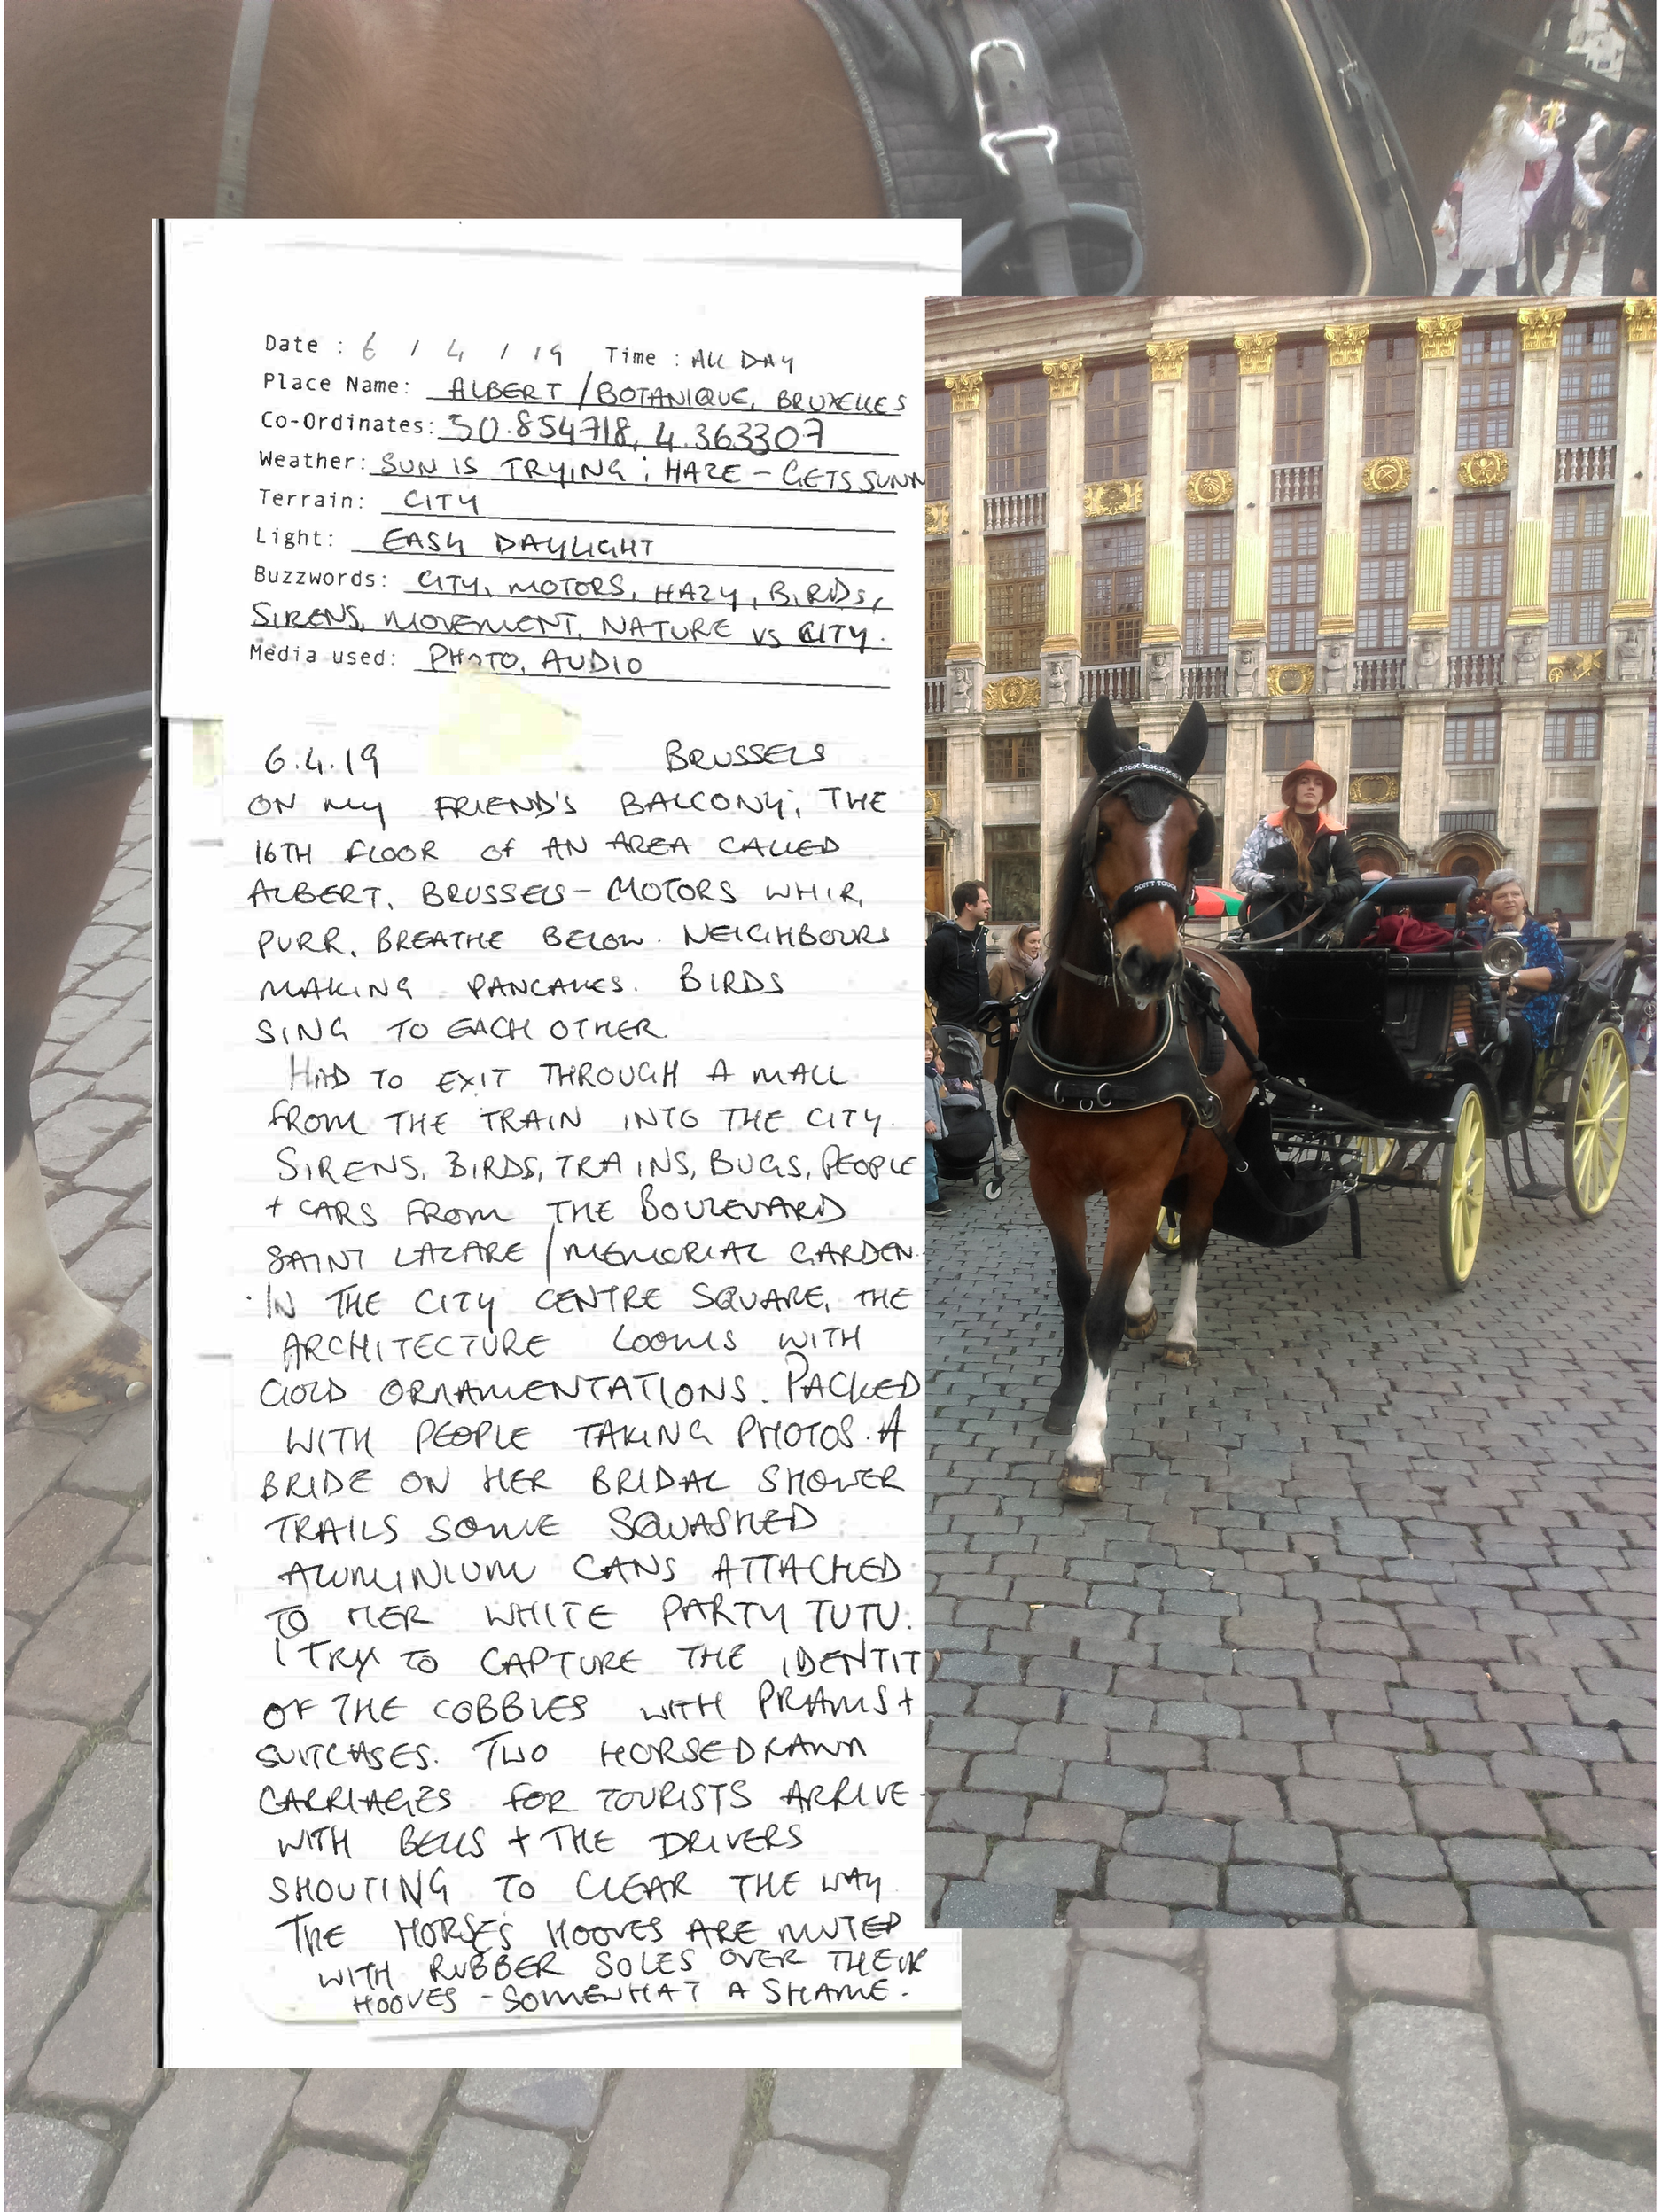 Date : 6 / 4 / 19 Time : ALL DAY
Place Name: ALBERT / BOTANIQUE, BRUXELLES
Co-Ordinates: 50.854718, 4.363307
Weather: SUN IS TRYING; HAZE - GETS SUNN
Terrain: CITY
Light: EASY DAYLIGHT
Buzzwords: CITY, MOTORS, HAZY, BIRDS,
SIRENS, MOVEMENT, NATURE VS CITY.
Media used: PHOTO, AUDIO
6.4.19 BRUSSELS
ON MY FRIEND'S BALCONY; THE
16TH FLOOR OF AN AREA CALLED
ALBERT, BRUSSELS - MOTORS WHIR,
PURR, BREATHE BELOW. NEIGHBOURS
MAKING PANCAKES. BIRDS
SING TO EACH OTHER.
HAD TO EXIT THROUGH A MALL
FROM THE TRAIN INTO THE CITY.
SIRENS, BIRDS, TRAINS, BUGS, PEOPLE
+ CARS FROM THE BOULEVARD
SAINT LAZARE / MEMORIAL GARDEN.
IN THE CITY CENTRE SQUARE, THE
ARCHITECTURE LOOMS WITH
GOLD ORNAMENTATIONS. PACKED
WITH PEOPLE TAKING PHOTOS. A
BRIDE ON HER BRIDAL SHOWER
TRAILS SOME SQUASHED
ALUMINIUM CANS ATTACHED
TO HER WHITE PARTY TUTU.
I TRY TO CAPTURE THE IDENTIT
OF THE COBBLES WITH PRAMS +
SUITCASES. TWO HORSEDRAWN
CARRIAGES FOR TOURISTS ARRIVE -
WITH BELLS + THE DRIVERS
SHOUTING TO CLEAR THE WAY
THE HORSE'S HOOVES ARE MUTED
WITH RUBBER SOLES OVER THEIR
HOOVES - SOMEWHAT A SHAME.
DON'T TOUCH